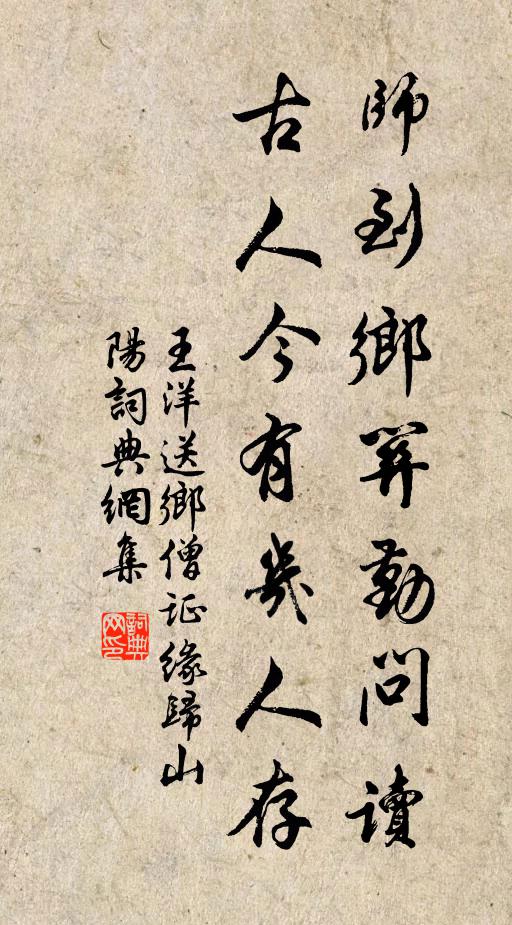 師到鄉關勤問讀
古人今有幾人存
王洋送鄉僧証緣歸山
陽詞典網集
詞典网印